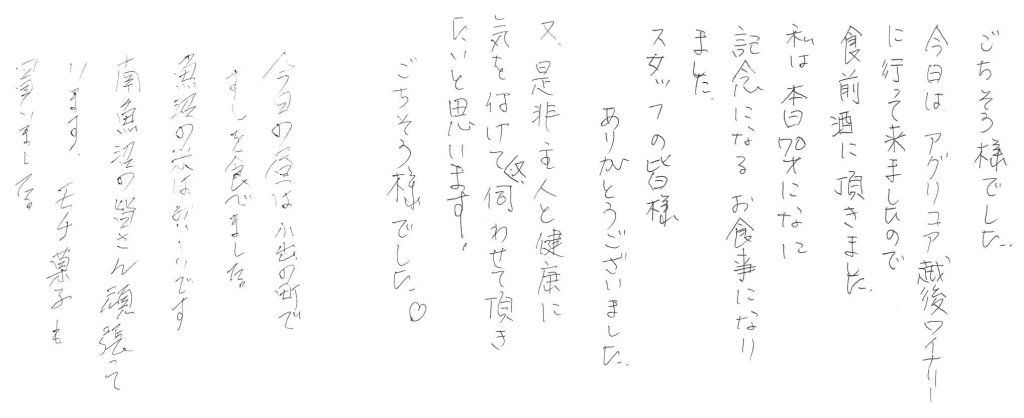 ごちそう様でした.
今日は アグリコア越後ワイナリー
に行って来ましたので
食前酒に頂きました.
私は 本日70才になに
記念になる お食事になり
ました.
スタッフの皆様
ありがとうございました.
又、是非主人と健康に
気を付けて 伺わせて頂き
たいと思います。
ごちそう様でした ♡
今日の昼は 小出の町で
すしを食べました。
魚沼の米はおいしいです
南魚沼の皆さん頑張って
ります. モチ菓子も
買いました。